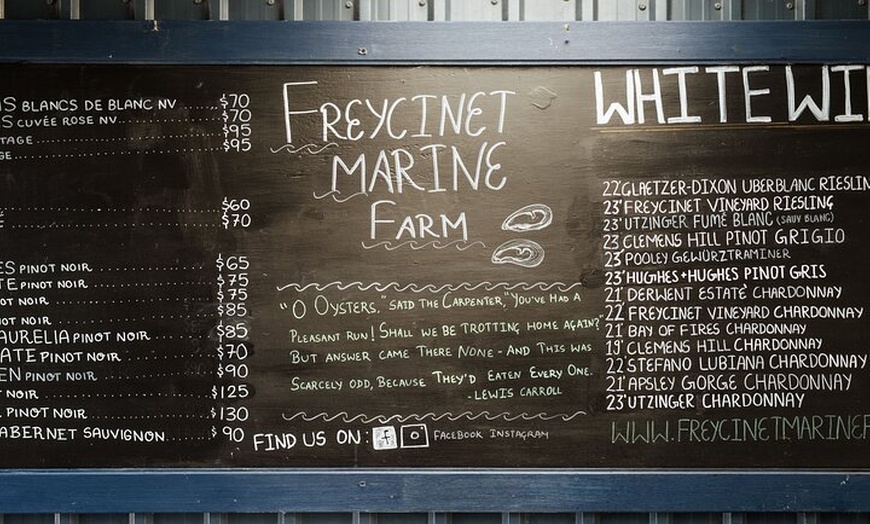 S BLANCS DE BLANC NV ..... $70
S CUVÉE ROSE NV ..... $70
TAGE ..... $95
GE ..... $95
$60
$70
ES PINOT NOIR ..... $65
TE PINOT NOIR ..... $75
OT NOIR ..... $75
OT NOIR ..... $85
AURELIA PINOT NOIR ..... $85
ATE PINOT NOIR ..... $70
EN PINOT NOIR ..... $90
T NOIR ..... $125
PINOT NOIR ..... $130
ABERNET SAUVIGNON ..... $90
FREYCINET
MARINE
FARM
"O OYSTERS," SAID THE CARPENTER, "YOU'VE HAD A
PLEASANT RUN! SHALL WE BE TROTTING HOME AGAIN?"
BUT ANSWER CAME THERE NONE - AND THIS WAS
SCARCELY ODD, BECAUSE THEY'D EATEN EVERY ONE.
-LEWIS CARROLL
FIND US ON: f FACEBOOK INSTAGRAM
WHITE WI
22' GLAETZER-DIXON UBERBLANC RIESLIN
23' FREYCINET VINEYARD RIESLING
23' UTZINGER FUMÉ BLANC (SAUV BLANC)
23 CLEMENS HILL PINOT GRIGIO
23' POOLEY GEWÜRZTRAMINER
23' HUGHES + HUGHES PINOT GRIS
21' DERWENT ESTATE CHARDONNAY
22' FREYCINET VINEYARD CHARDONNAY
21' BAY OF FIRES CHARDONNAY
19' CLEMENS HILL CHARDONNAY
22' STEFANO LUBIANA CHARDONNAY
21' APSLEY GORGE CHARDONNAY
23' UTZINGER CHARDONNAY
WWW.FREYCINETMARINEF